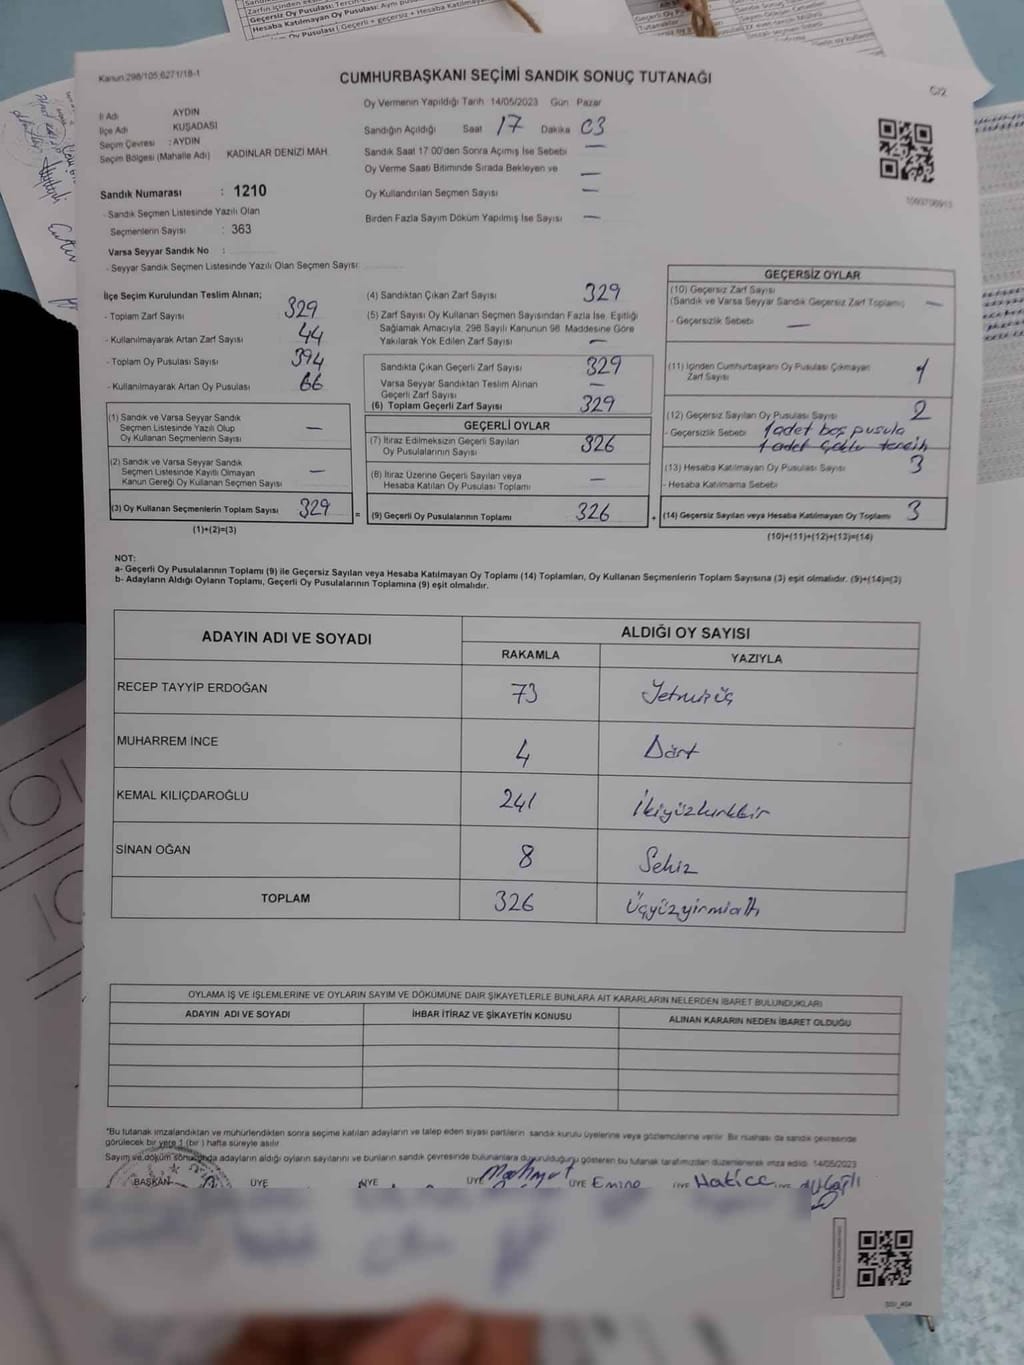 Kanun:298/105,6271/18-1
CUMHURBAŞKANI SEÇİMİ SANDIK SONUÇ TUTANAĞI
C/2
İl Adı AYDIN
İlçe Adı KUŞADASI
Seçim Çevresi : AYDIN
Seçim Bölgesi (Mahalle Adı) KADINLAR DENİZİ MAH.
Sandık Numarası : 1210
- Sandık Seçmen Listesinde Yazılı Olan
Seçmenlerin Sayısı : 363
Varsa Seyyar Sandık No :
- Seyyar Sandık Seçmen Listesinde Yazılı Olan Seçmen Sayısı:
Oy Vermenin Yapıldığı Tarih 14/05/2023 Gün Pazar
Sandığın Açıldığı Saat 17 Dakika 03
Sandık Saat 17:00'den Sonra Açılmış İse Sebebi —
Oy Verme Saati Bitiminde Sırada Bekleyen ve —
Oy Kullandırılan Seçmen Sayısı —
Birden Fazla Sayım Döküm Yapılmış İse Sayısı —
İlçe Seçim Kurulundan Teslim Alınan;
- Toplam Zarf Sayısı 329
- Kullanılmayarak Artan Zarf Sayısı 44
- Toplam Oy Pusulası Sayısı 394
- Kullanılmayarak Artan Oy Pusulası 66
(1) Sandık ve Varsa Seyyar Sandık
Seçmen Listesinde Yazılı Olup
Oy Kullanan Seçmenlerin Sayısı —
(2) Sandık ve Varsa Seyyar Sandık
Seçmen Listesinde Kayıtlı Olmayan
Kanun Gereği Oy Kullanan Seçmen Sayısı —
(3) Oy Kullanan Seçmenlerin Toplam Sayısı 329
(1)+(2)=(3)
(4) Sandıktan Çıkan Zarf Sayısı 329
(5) Zarf Sayısı Oy Kullanan Seçmen Sayısından Fazla İse, Eşitliği
Sağlamak Amacıyla, 298 Sayılı Kanunun 98. Maddesine Göre
Yakılarak Yok Edilen Zarf Sayısı —
Sandıkta Çıkan Geçerli Zarf Sayısı 329
Varsa Seyyar Sandıktan Teslim Alınan
Geçerli Zarf Sayısı —
(6) Toplam Geçerli Zarf Sayısı 329
GEÇERLİ OYLAR
(7) İtiraz Edilmeksizin Geçerli Sayılan
Oy Pusulalarının Sayısı 326
(8) İtiraz Üzerine Geçerli Sayılan veya
Hesaba Katılan Oy Pusulası Toplamı —
= (9) Geçerli Oy Pusulalarının Toplamı 326
GEÇERSİZ OYLAR
(10) Geçersiz Zarf Sayısı
(Sandık ve Varsa Seyyar Sandık Geçersiz Zarf Toplamı) —
- Geçersizlik Sebebi —
(11) İçinden Cumhurbaşkanı Oy Pusulası Çıkmayan
Zarf Sayısı 1
(12) Geçersiz Sayılan Oy Pusulası Sayısı 2
- Geçersizlik Sebebi 1 adet boş pusula
1 adet çoklu tercih
(13) Hesaba Katılmayan Oy Pusulası Sayısı 3
- Hesaba Katılmama Sebebi
+ (14) Geçersiz Sayılan veya Hesaba Katılmayan Oy Toplamı 3
(10)+(11)+(12)+(13)=(14)
NOT:
a- Geçerli Oy Pusulalarının Toplamı (9) ile Geçersiz Sayılan veya Hesaba Katılmayan Oy Toplamı (14) Toplamları, Oy Kullanan Seçmenlerin Toplam Sayısına (3) eşit olmalıdır. (9)+(14)=(3)
b- Adayların Aldığı Oyların Toplamı, Geçerli Oy Pusulalarının Toplamına (9) eşit olmalıdır.
ADAYIN ADI VE SOYADI ALDIĞI OY SAYISI
RAKAMLA YAZIYLA
RECEP TAYYİP ERDOĞAN 73 Yetmişüç
MUHARREM İNCE 4 Dört
KEMAL KILIÇDAROĞLU 241 İkiyüzkırkbir
SİNAN OĞAN 8 Sekiz
TOPLAM 326 Üçyüzyirmialtı
OYLAMA İŞ VE İŞLEMLERİNE VE OYLARIN SAYIM VE DÖKÜMÜNE DAİR ŞİKAYETLERLE BUNLARA AİT KARARLARIN NELERDEN İBARET BULUNDUKLARI
ADAYIN ADI VE SOYADI İHBAR İTİRAZ VE ŞİKAYETİN KONUSU ALINAN KARARIN NEDEN İBARET OLDUĞU
*Bu tutanak imzalandıktan ve mühürlendikten sonra seçime katılan adayların ve talep eden siyasi partilerin sandık kurulu üyelerine veya gözlemcilerine verilir. Bir nüshası da sandık çevresinde
görülecek bir yere 1 (bir) hafta süreyle asılır.
Sayım ve döküm sonucunda adayların aldığı oyların sayılarını ve bunların sandık çevresinde bulunanlara duyurulduğunu gösteren bu tutanak tarafımızdan düzenlenerek imza edildi. 14/05/2023
BAŞKAN ÜYE ÜYE ÜYE Mahmut ÜYE Emine ÜYE Hatice ÜYE